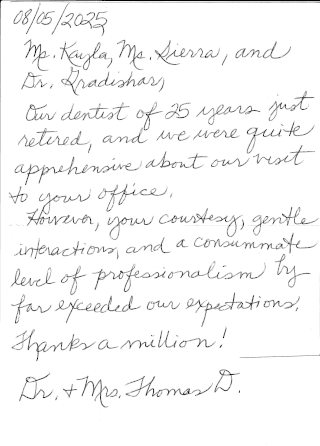 08/05/2025
Ms. Kayla, Ms. Sierra, and
Dr. Gradishar,
Our dentist of 25 years just
retired, and we were quite
apprehensive about our visit
to your office.
However, your courtesy, gentle
interactions, and a consummate
level of professionalism by
far exceeded our expectations.
Thanks a million!
Dr. + Mrs. Thomas D.